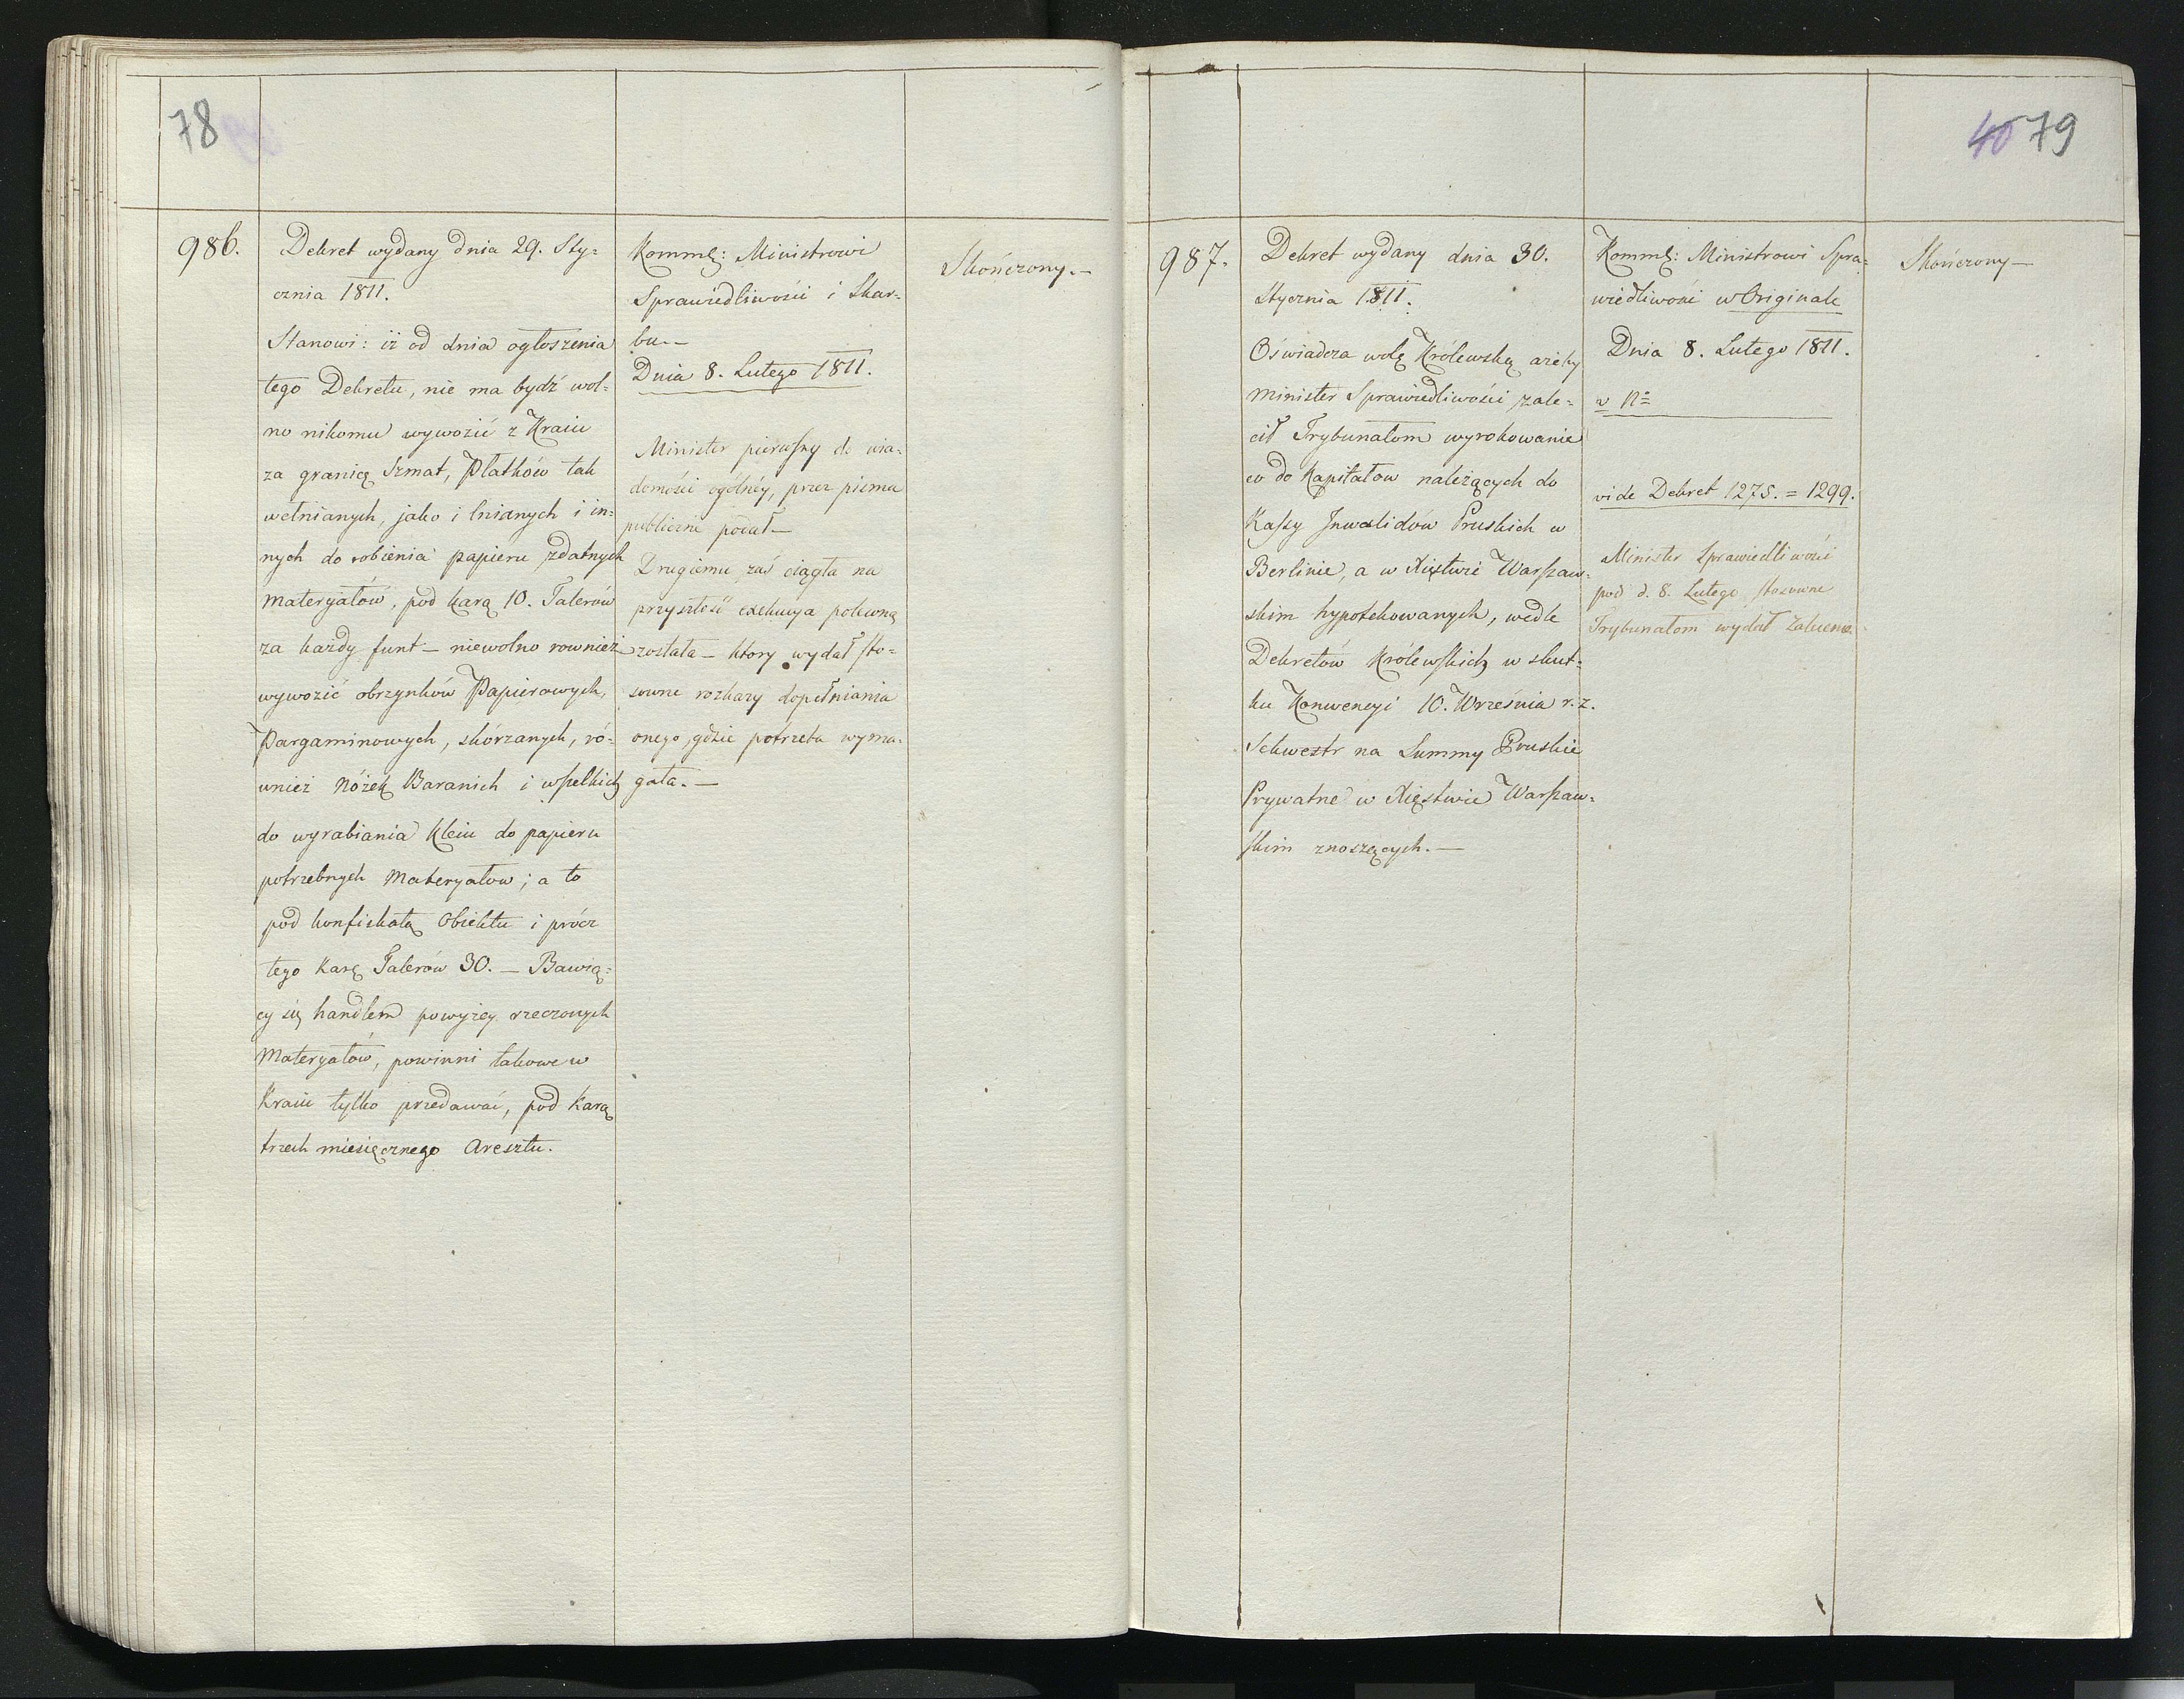 78
986.
Dekret wydany dnia 29. Sty-
cznia 1811.
Stanowi: iż od dnia ogłoszenia
tego Dekretu, nie ma bydź wol-
no nikomu wywozić z Kraiu
za granicę Szmat, Płatków tak
wełnianych, jako i lnianych i in-
nych do robienia papieru zdatnych
materyałów, pod karą 10. Talerów
za każdy funt – niewolno rownież
wywozić obrzynków Papierowych,
Pargaminowych, skórzanych, ró-
wnież Nóżek Baranich i wszelkich
do wyrabiania Kleiu do papieru
potrzebnych Materyałow; a to
pod konfiskatą Obiektu i prócz
tego Karą Talerów 30. – Bawią-
cy się handlem powyżey rzeczonych
Materyałów, powinni takowe w
Kraiu tylko przedawać, pod Karą
trzech miesięcznego Aresztu.
Kommę: Ministrowi
Sprawiedliwości i Skar-
bu. –
Dnia 8. Lutego 1811.
Minister pierwszy do wia-
domości ogólnéy, przez pisma
publiczne podał –
Drugiemu zaś ciągła na
przyszłość exekucya polecona
została – ktory wydał sto-
sowne rozkazy dopełniania
onego, gdzie potrzeba wyma-
gała. –
Skończony. –
40 79
987.
Dekret wydany dnia 30.
Stycznia 1811.
Oświadcza wolę Królewską ażeby
Minister Sprawiedliwości zale-
cił Trybunałom wyrokowanie
co do Kapitałow należących do
Kassy Inwalidów Pruskich w
Berlinie, a w Xięstwie Warszaw-
skim hypotekowanych, wedle
Dekretów Królewskich w skut-
ku Konwencyi 10. Września r. z.
Sekwestr na Summy Pruskie
Prywatne w Xięstwie Warszaw-
skim znoszących. –
Kommę: Ministrowi Spra-
wiedliwości w Originale
Dnia 8. Lutego 1811.
v No
vide Dekret 1275. = 1299.
Minister Sprawiedliwości
pod d. 8. Lutego stosowne
Trybunałom wydał Zalecenia
Skończony –